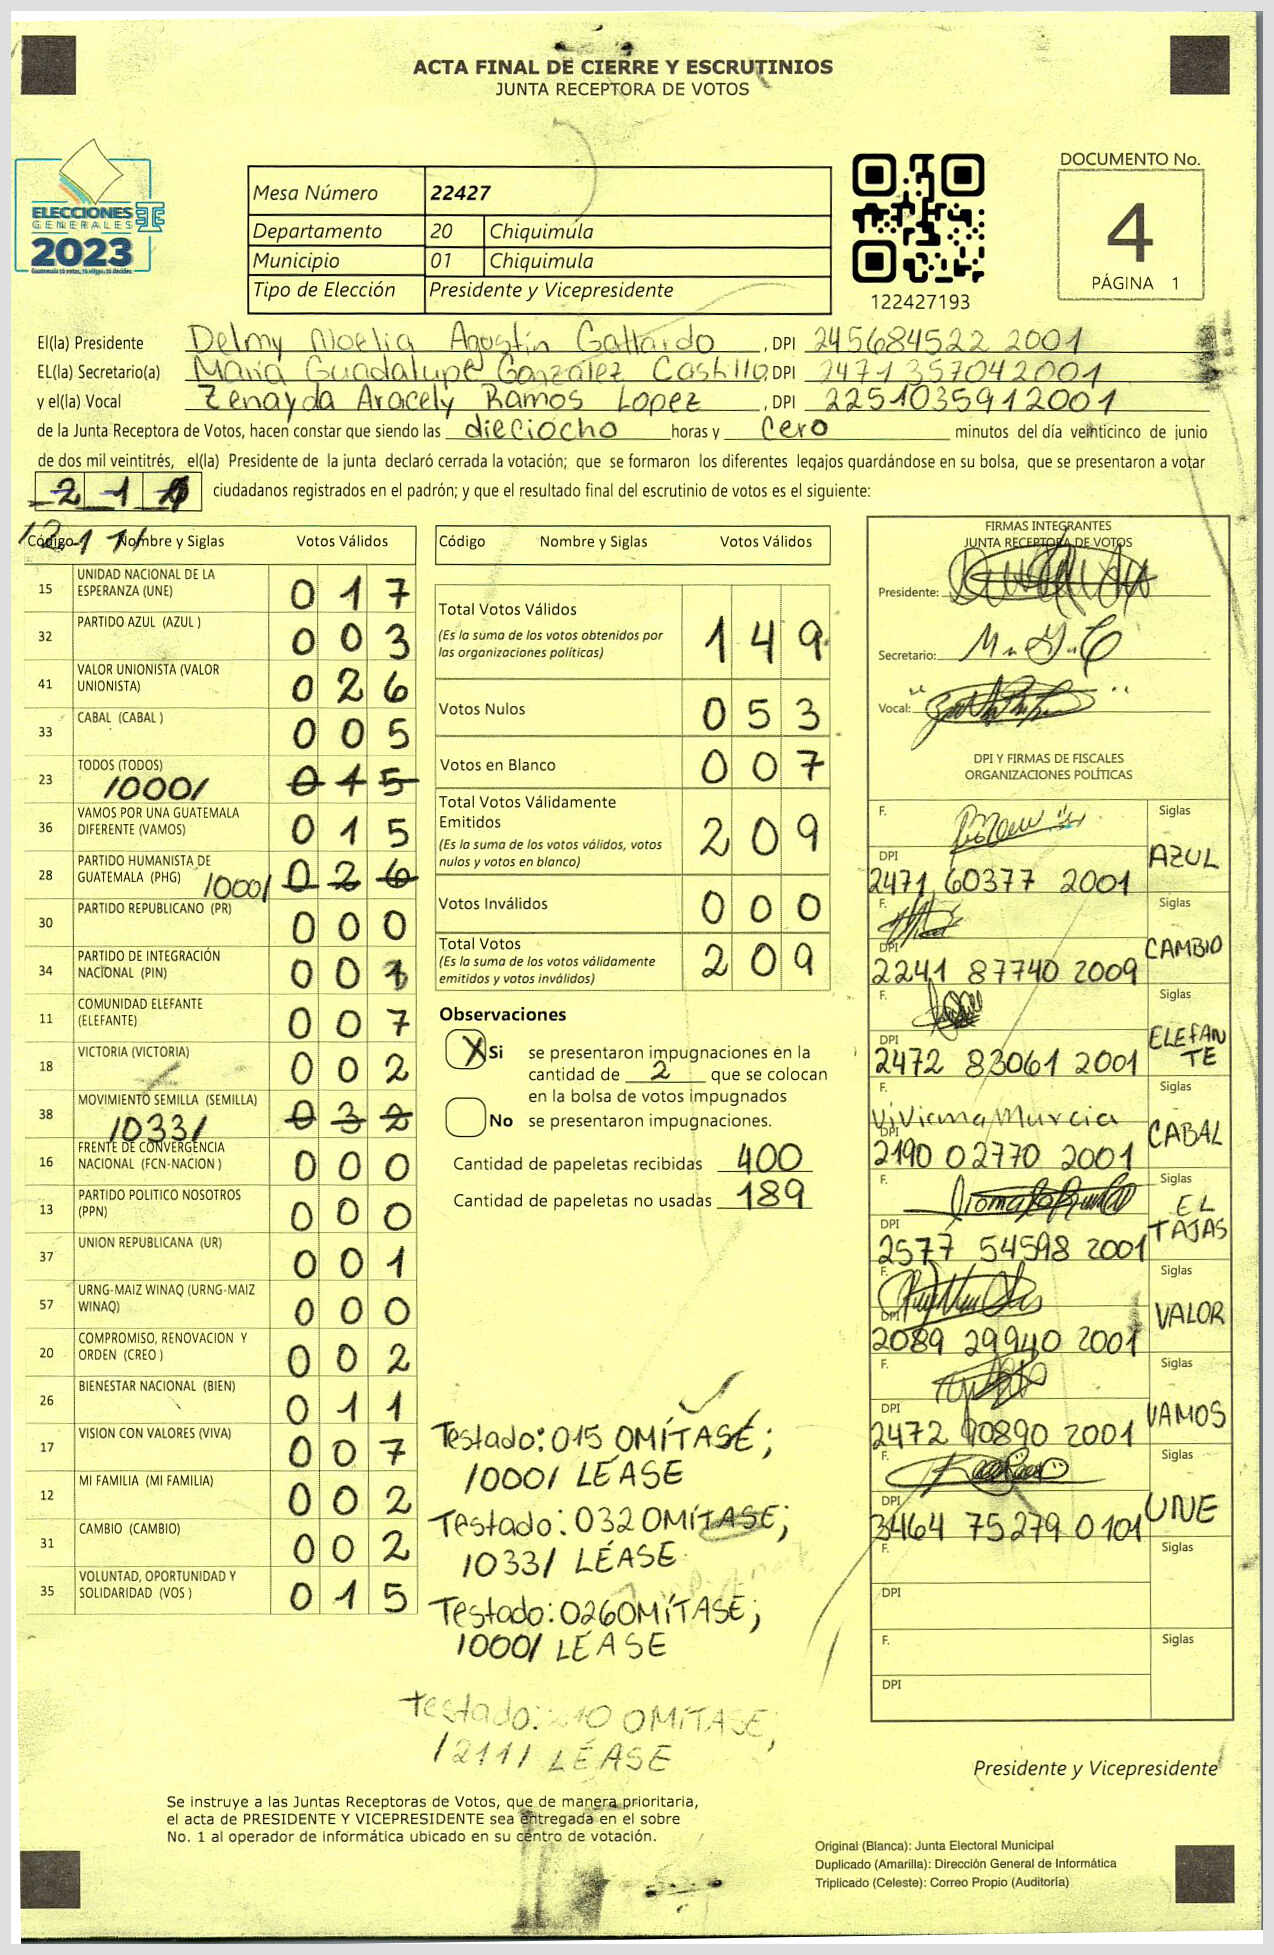 ACTA FINAL DE CIERRE Y ESCRUTINIOS
JUNTA RECEPTORA DE VOTOS
ELECCIONES
GENERALES
2023
Mesa Número 22427
Departamento 20 Chiquimula
Municipio 01 Chiquimula
Tipo de Elección Presidente y Vicepresidente
122427193
DOCUMENTO No.
4
PÁGINA 1
El(la) Presidente Delmy Noelia Agustín Gallardo, DPI 245684522 2001
EL(la) Secretario(a) María Guadalupe González Castillo, DPI 2471 357042001
y el(la) Vocal Zenayda Aracely Ramos Lopez, DPI 2251035912001
de la Junta Receptora de Votos, hacen constar que siendo las dieciocho horas y cero minutos del día veinticinco de junio
de dos mil veintitrés, el(la) Presidente de la junta declaró cerrada la votación; que se formaron los diferentes legajos guardándose en su bolsa, que se presentaron a votar
21 ciudadanos registrados en el padrón; y que el resultado final del escrutinio de votos es el siguiente:
/211/
Código Nombre y Siglas Votos Válidos
15 UNIDAD NACIONAL DE LA ESPERANZA (UNE) 017
32 PARTIDO AZUL (AZUL ) 003
41 VALOR UNIONISTA (VALOR UNIONISTA) 026
33 CABAL (CABAL ) 005
23 TODOS (TODOS) /000/ 015
36 VAMOS POR UNA GUATEMALA DIFERENTE (VAMOS) 015
28 PARTIDO HUMANISTA DE GUATEMALA (PHG) /000/ 026
30 PARTIDO REPUBLICANO (PR) 000
34 PARTIDO DE INTEGRACIÓN NACIONAL (PIN) 001
11 COMUNIDAD ELEFANTE (ELEFANTE) 007
18 VICTORIA (VICTORIA) 002
38 MOVIMIENTO SEMILLA (SEMILLA) /033/ 032
16 FRENTE DE CONVERGENCIA NACIONAL (FCN-NACION ) 000
13 PARTIDO POLITICO NOSOTROS (PPN) 000
37 UNION REPUBLICANA (UR) 001
57 URNG-MAIZ WINAQ (URNG-MAIZ WINAQ) 000
20 COMPROMISO, RENOVACION Y ORDEN (CREO ) 002
26 BIENESTAR NACIONAL (BIEN) 011
17 VISION CON VALORES (VIVA) 007
12 MI FAMILIA (MI FAMILIA) 002
31 CAMBIO (CAMBIO) 002
35 VOLUNTAD, OPORTUNIDAD Y SOLIDARIDAD (VOS ) 015
Código Nombre y Siglas Votos Válidos
Total Votos Válidos 149
(Es la suma de los votos obtenidos por las organizaciones políticas)
Votos Nulos 053
Votos en Blanco 007
Total Votos Válidamente Emitidos 209
(Es la suma de los votos válidos, votos nulos y votos en blanco)
Votos Inválidos 000
Total Votos 209
(Es la suma de los votos válidamente emitidos y votos inválidos)
Observaciones
X Si se presentaron impugnaciones en la
cantidad de 2 que se colocan
en la bolsa de votos impugnados
No se presentaron impugnaciones.
Cantidad de papeletas recibidas 400
Cantidad de papeletas no usadas 189
Testado: 015 OMÍTASE;
/000/ LÉASE
Testado: 032 OMÍTASE;
/033/ LÉASE
Testado: 026 OMÍTASE;
/000/ LÉASE
Testado: 210 OMÍTASE,
/211/ LÉASE
FIRMAS INTEGRANTES
JUNTA RECEPTORA DE VOTOS
Presidente:
Secretario:
Vocal:
DPI Y FIRMAS DE FISCALES
ORGANIZACIONES POLÍTICAS
F. Siglas
DPI 2471 60377 2001 AZUL
F. Siglas
DPI 2241 87740 2009 CAMBIO
F. Siglas
DPI 2472 83061 2001 ELEFANTE
F. Viviana Murcia Siglas
DPI 2190 02770 2001 CABAL
F. Siglas
DPI 2577 54598 2001 EL TAJAS
F. Siglas
DPI 2089 29940 2001 VALOR
F. Siglas
DPI 2472 90890 2001 VAMOS
F. Siglas
DPI 3464 75279 0101 UNE
F. Siglas
DPI
F. Siglas
DPI
Presidente y Vicepresidente
Se instruye a las Juntas Receptoras de Votos, que de manera prioritaria,
el acta de PRESIDENTE Y VICEPRESIDENTE sea entregada en el sobre
No. 1 al operador de informática ubicado en su centro de votación.
Original (Blanca): Junta Electoral Municipal
Duplicado (Amarilla): Dirección General de Informática
Triplicado (Celeste): Correo Propio (Auditoría)